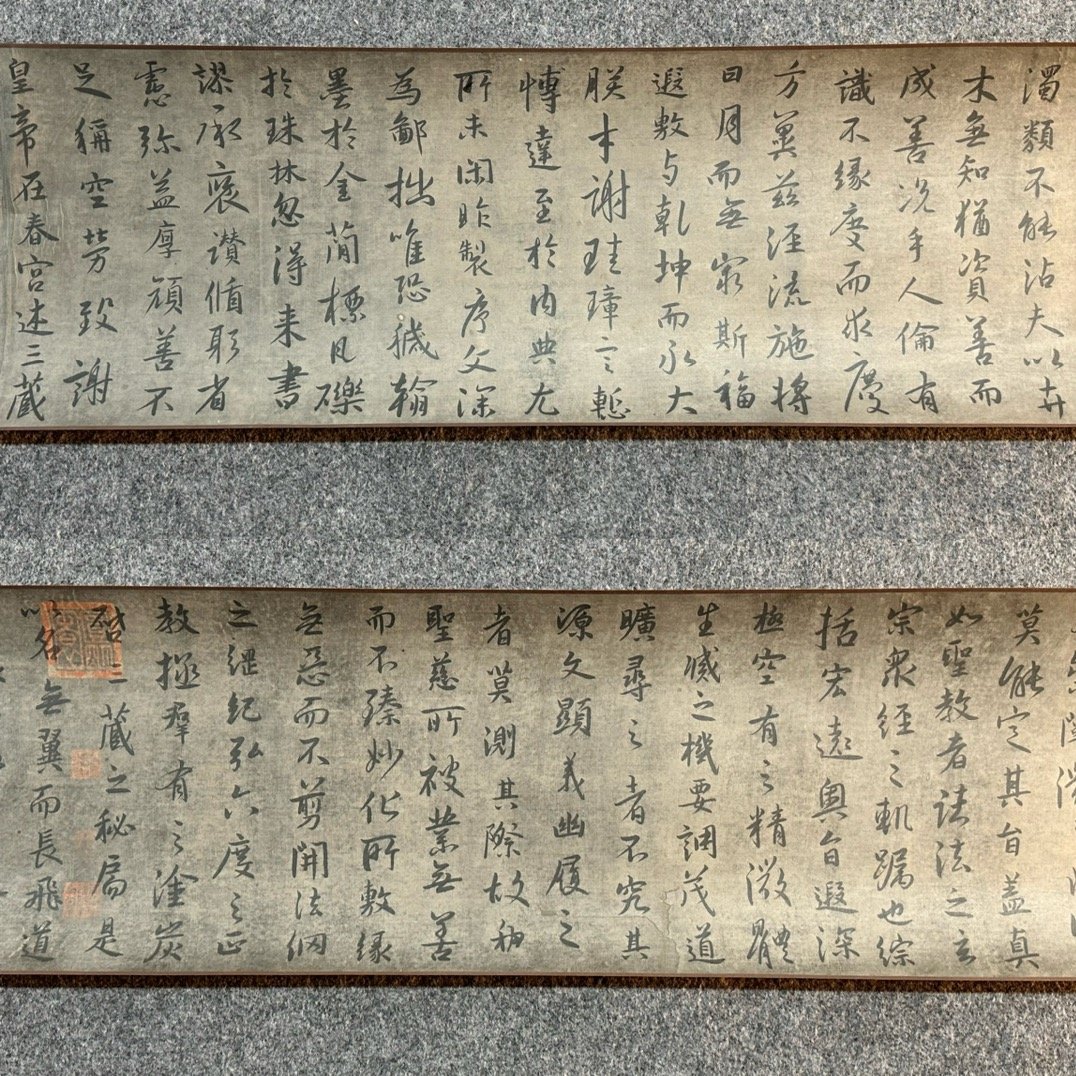 濁類不能沾夫以卉
木無知猶資善而
成善況乎人倫有
識不緣慶而求慶
方冀茲經流施將
日月而無窮斯福
遐敷与乾坤而永大
朕才謝珪璋言慙
博達至於內典尤
所未閑昨製序文深
為鄙拙唯恐穢翰
墨於金簡標瓦礫
於珠林忽得来書
謬承褒讚循躬省
慮弥益厚顏善不
足稱空勞致謝
皇帝在春宮述三藏
莫能定其旨盖真
如聖教者諸法之玄
宗衆經之軌躅也綜
括宏遠奧旨遐深
極空有之精微體
生滅之機要詞茂道
曠尋之者不究其
源文顯義幽履之
者莫測其際故知
聖慈所被業無善
而不臻妙化所敷緣
無惡而不剪開法網
之綱紀弘六度之正
教拯羣有之塗炭
啓三藏之秘扃是
以名無翼而長飛道